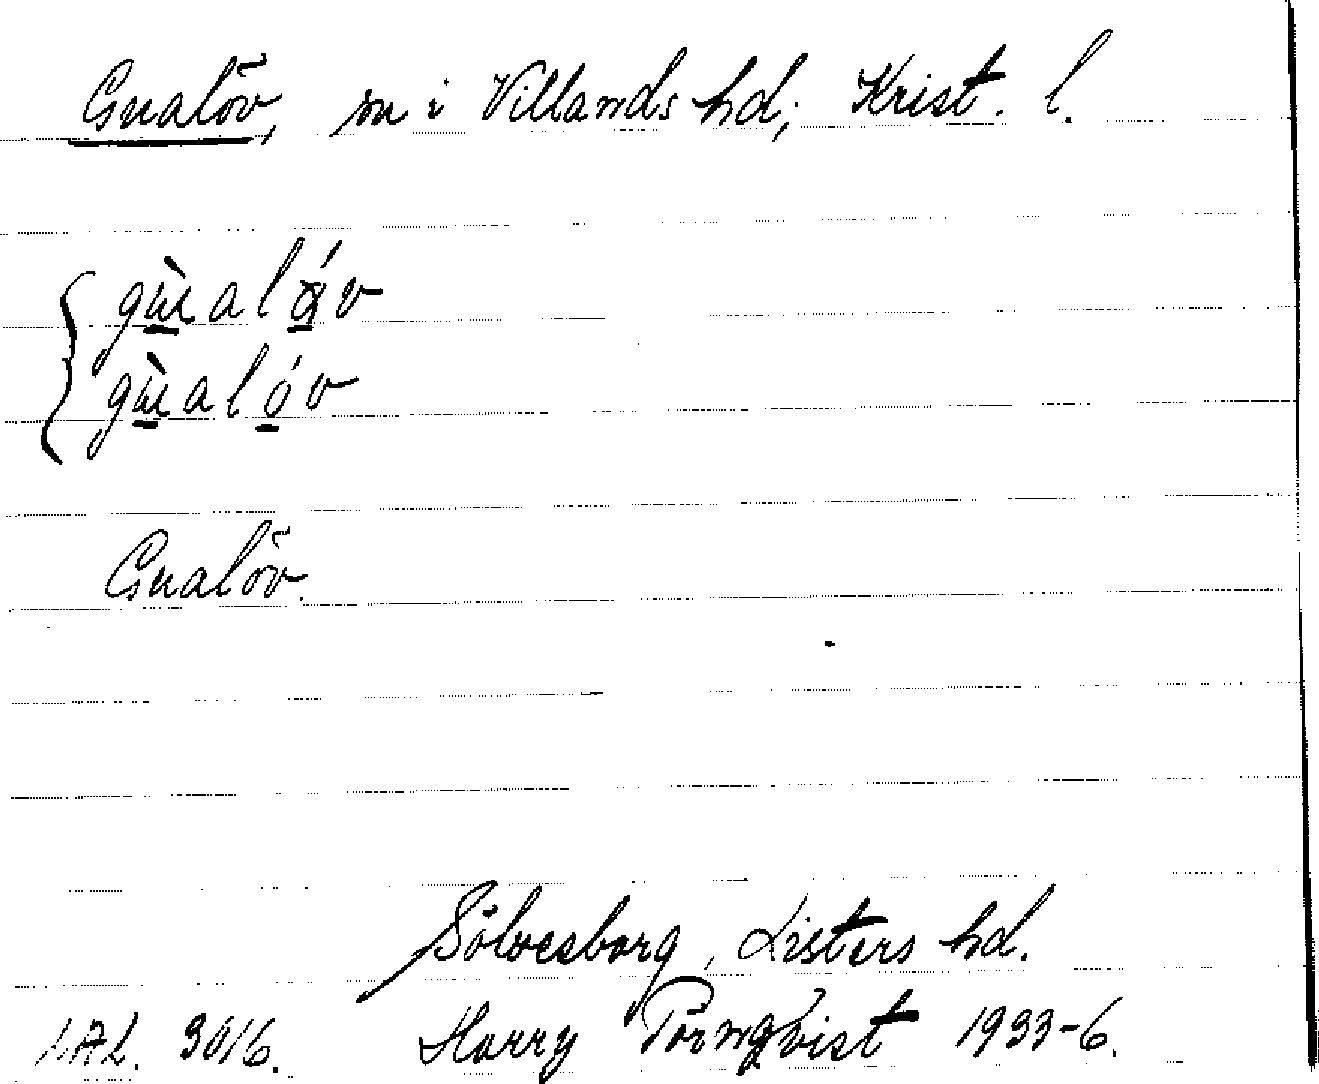 Gualöv, sn i Villands hd; Krist. l.
gùalǿv
gùalóv
Gualöv.
Sölvesborg, Listers hd.
LAL. 3016. Harry Törnqvist 1933-6.